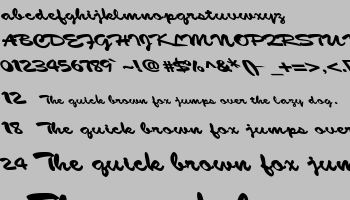 abcdefghijklmnopqrstuvwxyz
ABCDEFGHIJKLMNOPQRSTUV
0123456789 ~!@#$%^&*() _+=>,<.
12 The quick brown fox jumps over the lazy dog.
18 The quick brown fox jumps over
24 The quick brown fox jum